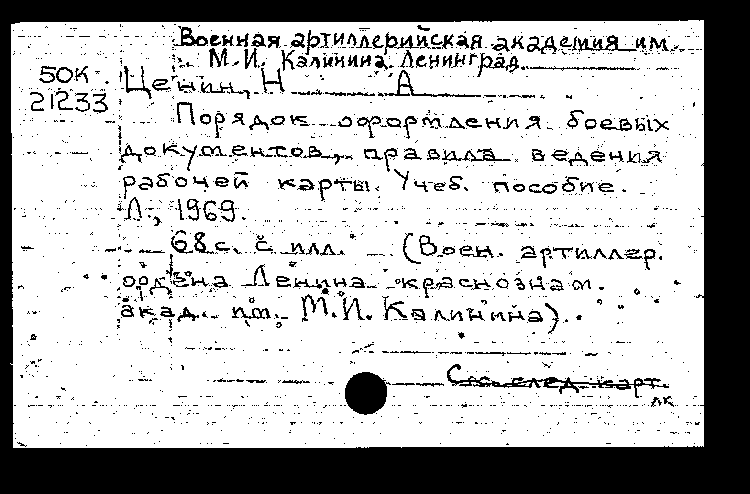 Военная артиллерийская академия им.
М.И. Калинина. Ленинград.
50К
21233
Ценин, Н А
Порядок оформления боевых
документов, правила ведения
рабочей карты. Учеб. пособие.
Л., 1969.
68с. с илл. (Воен. артиллер.
ордена Ленина краснознам.
акад. им. М.И. Калинина).
См. след. карт.
лк